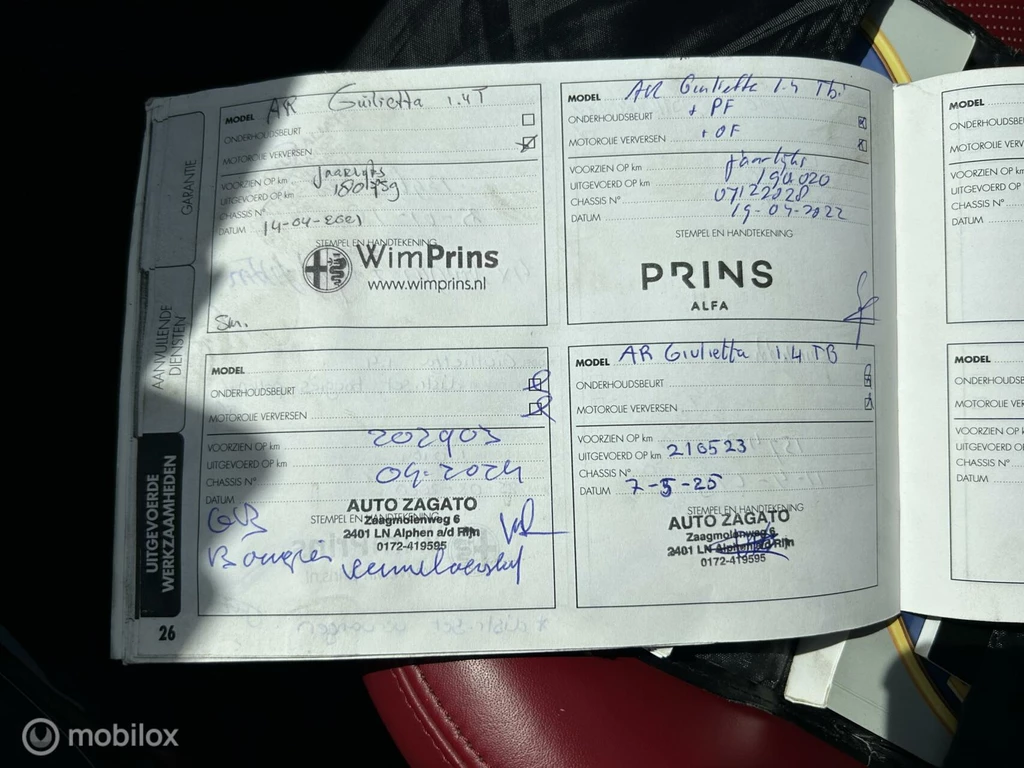 GARANTIE
AANVULLENDE DIENSTEN
UITGEVOERDE WERKZAAMHEDEN
26
MODEL AR Giulietta 1.4T
ONDERHOUDSBEURT
MOTOROLIE VERVERSEN
VOORZIEN OP km Jaarlijks
UITGEVOERD OP km
CHASSIS N°
DATUM 14-04-2021
STEMPEL EN HANDTEKENING
WimPrins
www.wimprins.nl
MODEL AR Giulietta 1.4 Tb.
ONDERHOUDSBEURT + PF
MOTOROLIE VERVERSEN + OF
VOORZIEN OP km jaarlijks
UITGEVOERD OP km 190020
CHASSIS N° 07122028
DATUM 19-04-2022
STEMPEL EN HANDTEKENING
PRINS
ALFA
MODEL
ONDERHOUDSBEURT
MOTOROLIE VERVERSEN
VOORZIEN OP km 202903
UITGEVOERD OP km
CHASSIS N° 04-2024
DATUM
STEMPEL EN HANDTEKENING
AUTO ZAGATO
Zaagmolenweg 6
2401 LN Alphen a/d Rijn
0172-419595
Bougies
MODEL AR Giulietta 1.4 TB
ONDERHOUDSBEURT
MOTOROLIE VERVERSEN
VOORZIEN OP km
UITGEVOERD OP km 216523
CHASSIS N°
DATUM 7-5-25
STEMPEL EN HANDTEKENING
AUTO ZAGATO
Zaagmolenweg 6
2401 LN Alphen a/d Rijn
0172-419595
MODEL
ONDERHOUDSBE
MOTOROLIE VERV
VOORZIEN OP km
UITGEVOERD OP k
CHASSIS N°
DATUM
MODEL
ONDERHOUDSB
MOTOROLIE VER
VOORZIEN OP k
UITGEVOERD OP
CHASSIS N°
DATUM
mobilox